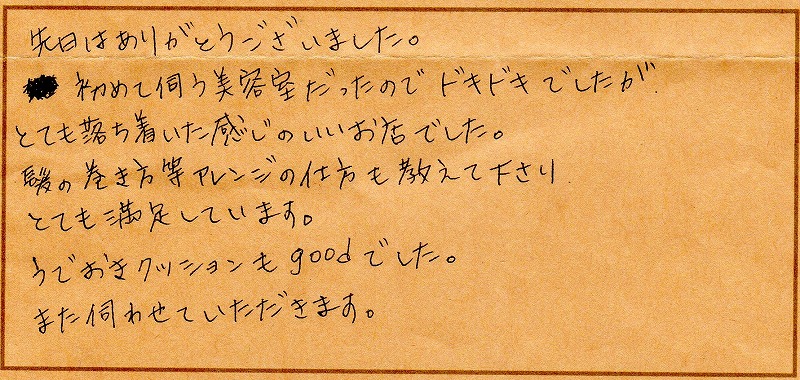 先日はありがとうございました。
初めて伺う美容室だったのでドキドキでしたが
とても落ち着いた感じのいいお店でした。
髪の巻き方等アレンジの仕方も教えて下さり
とても満足しています。
うでおきクッションもgoodでした。
また伺わせていただきます。